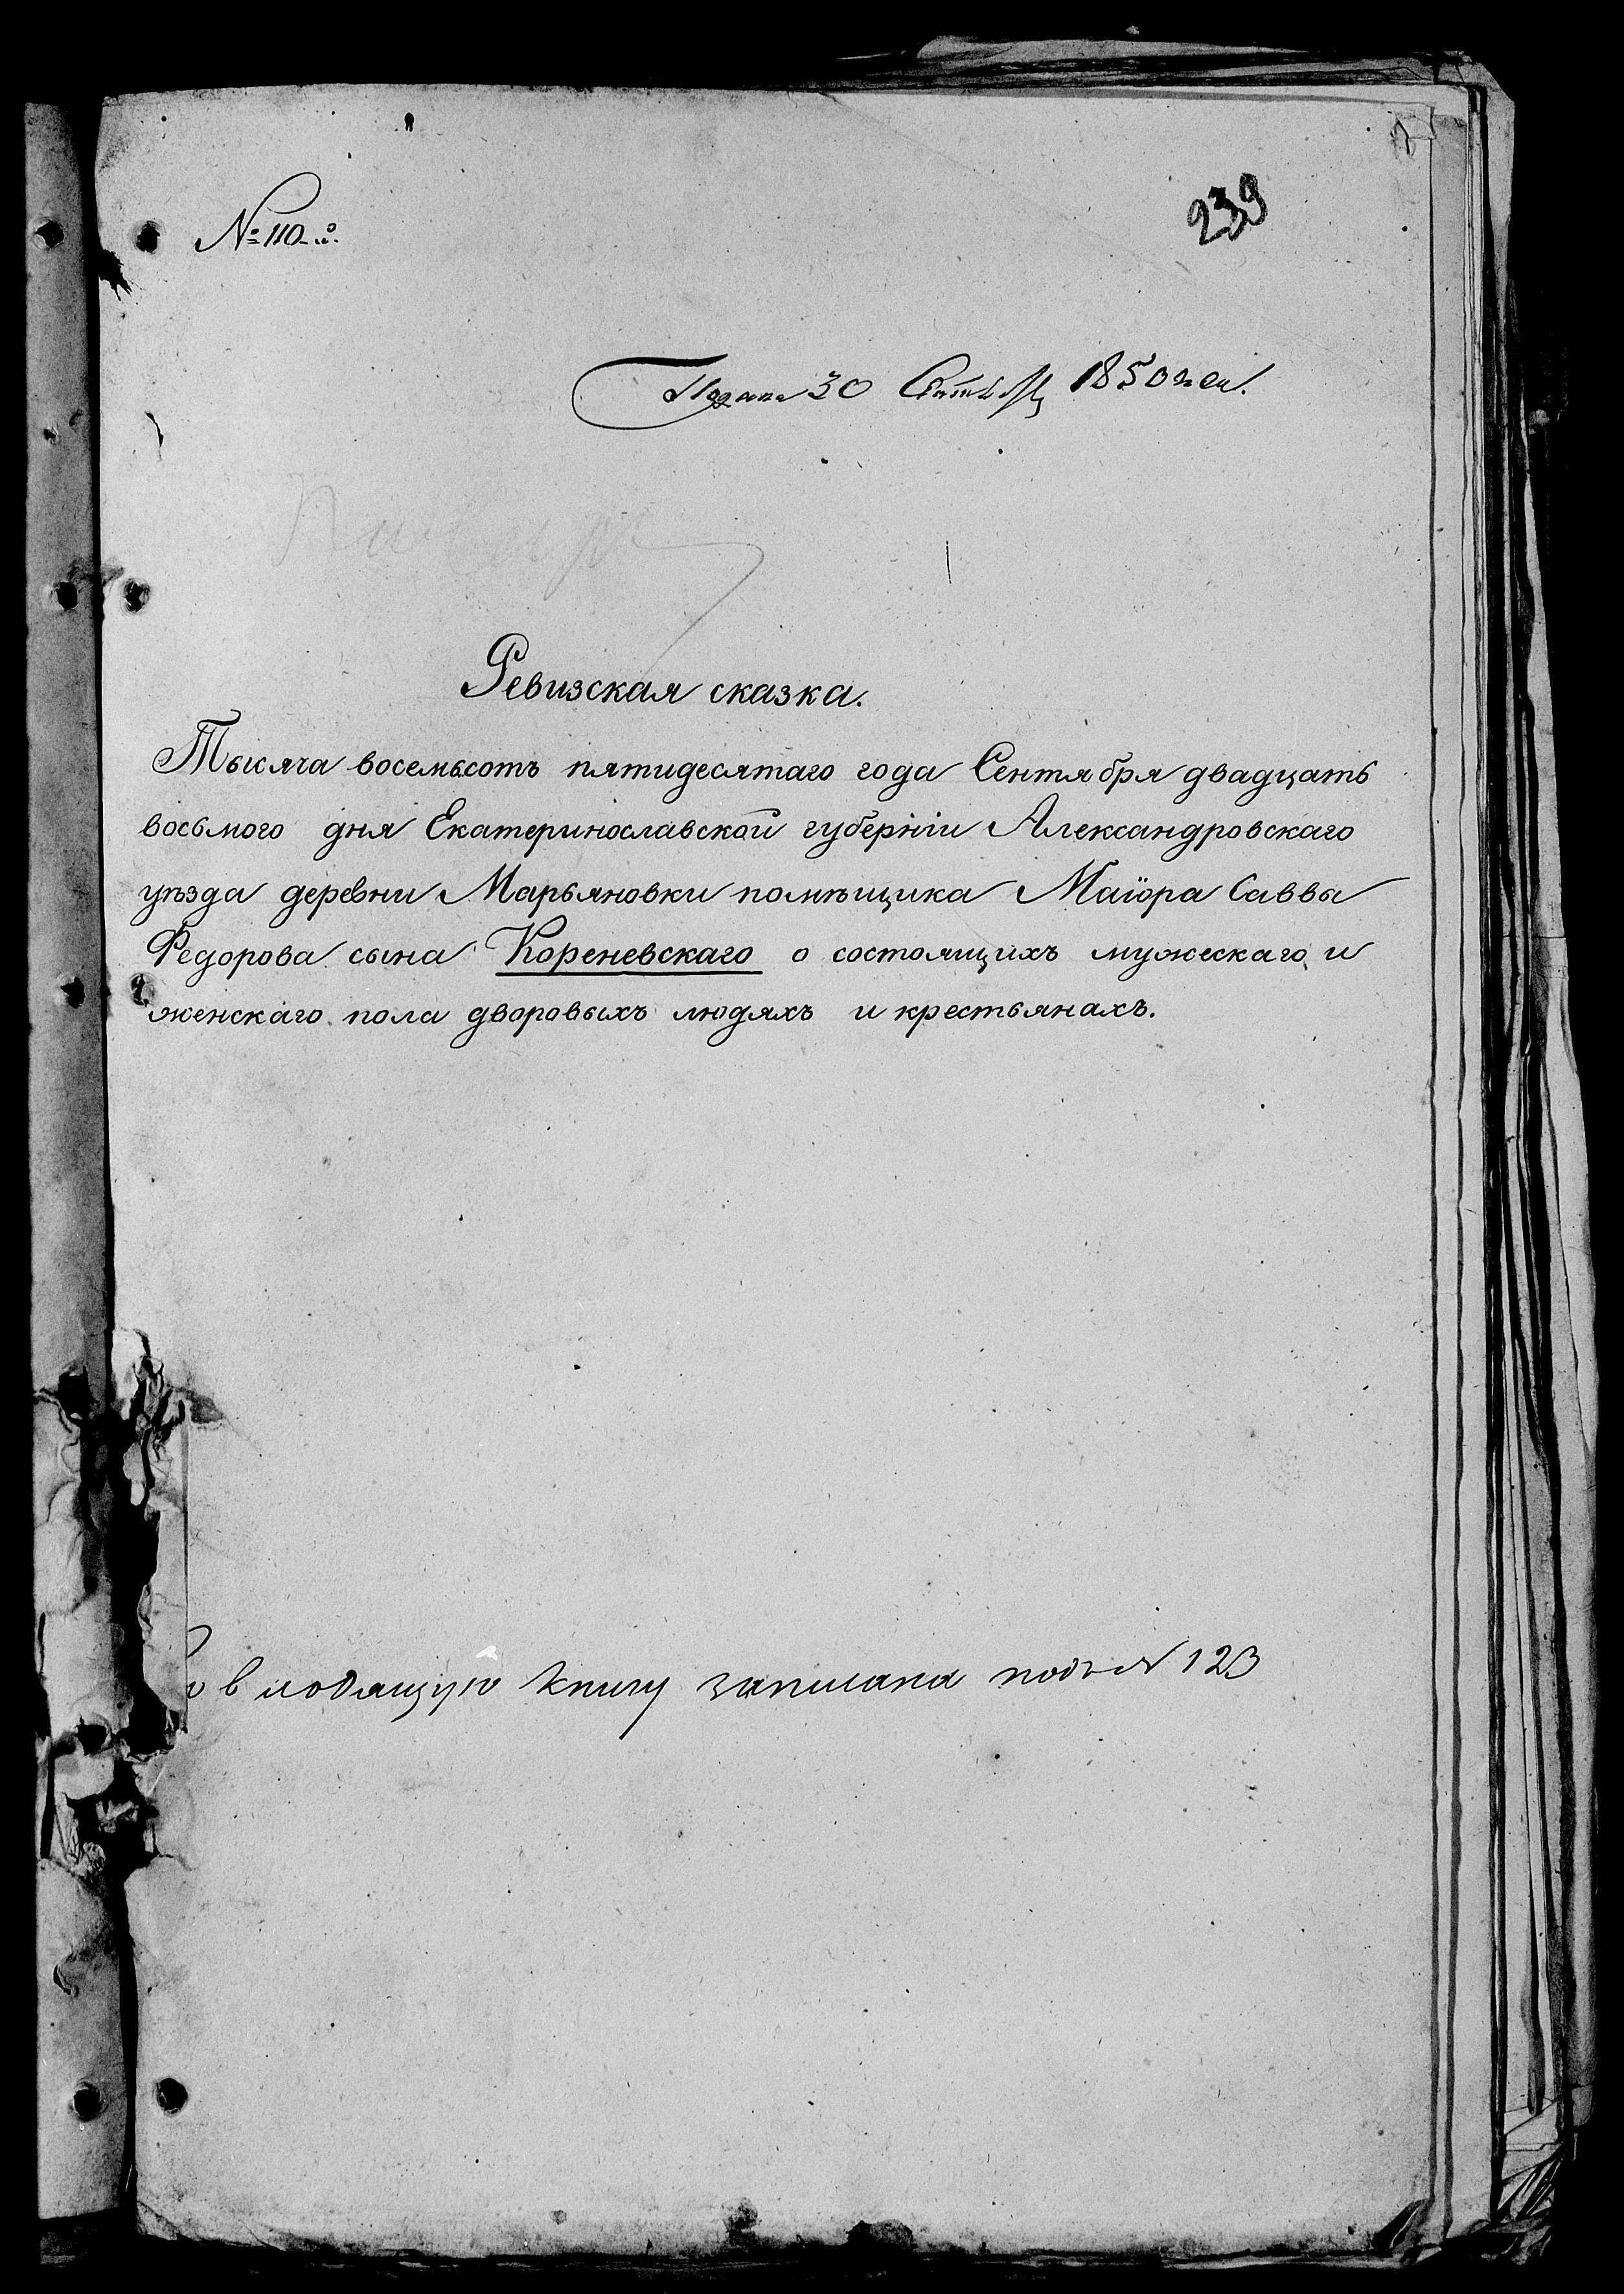 № 110-й.
239
Подана 30 Сентября 1850 года.
Ревизская сказка.
Тысяча восемьсотъ пятидесятаго года Сентября двадцать
восьмого дня Екатеринославской губерніи Александровскаго
уѣзда деревни Марьяновки помѣщика Маіора Саввы
Федорова сына Кореневскаго о состоящихъ мужескаго и
женскаго пола дворовыхъ людяхъ и крестьянахъ.
книгу записана подъ № 123